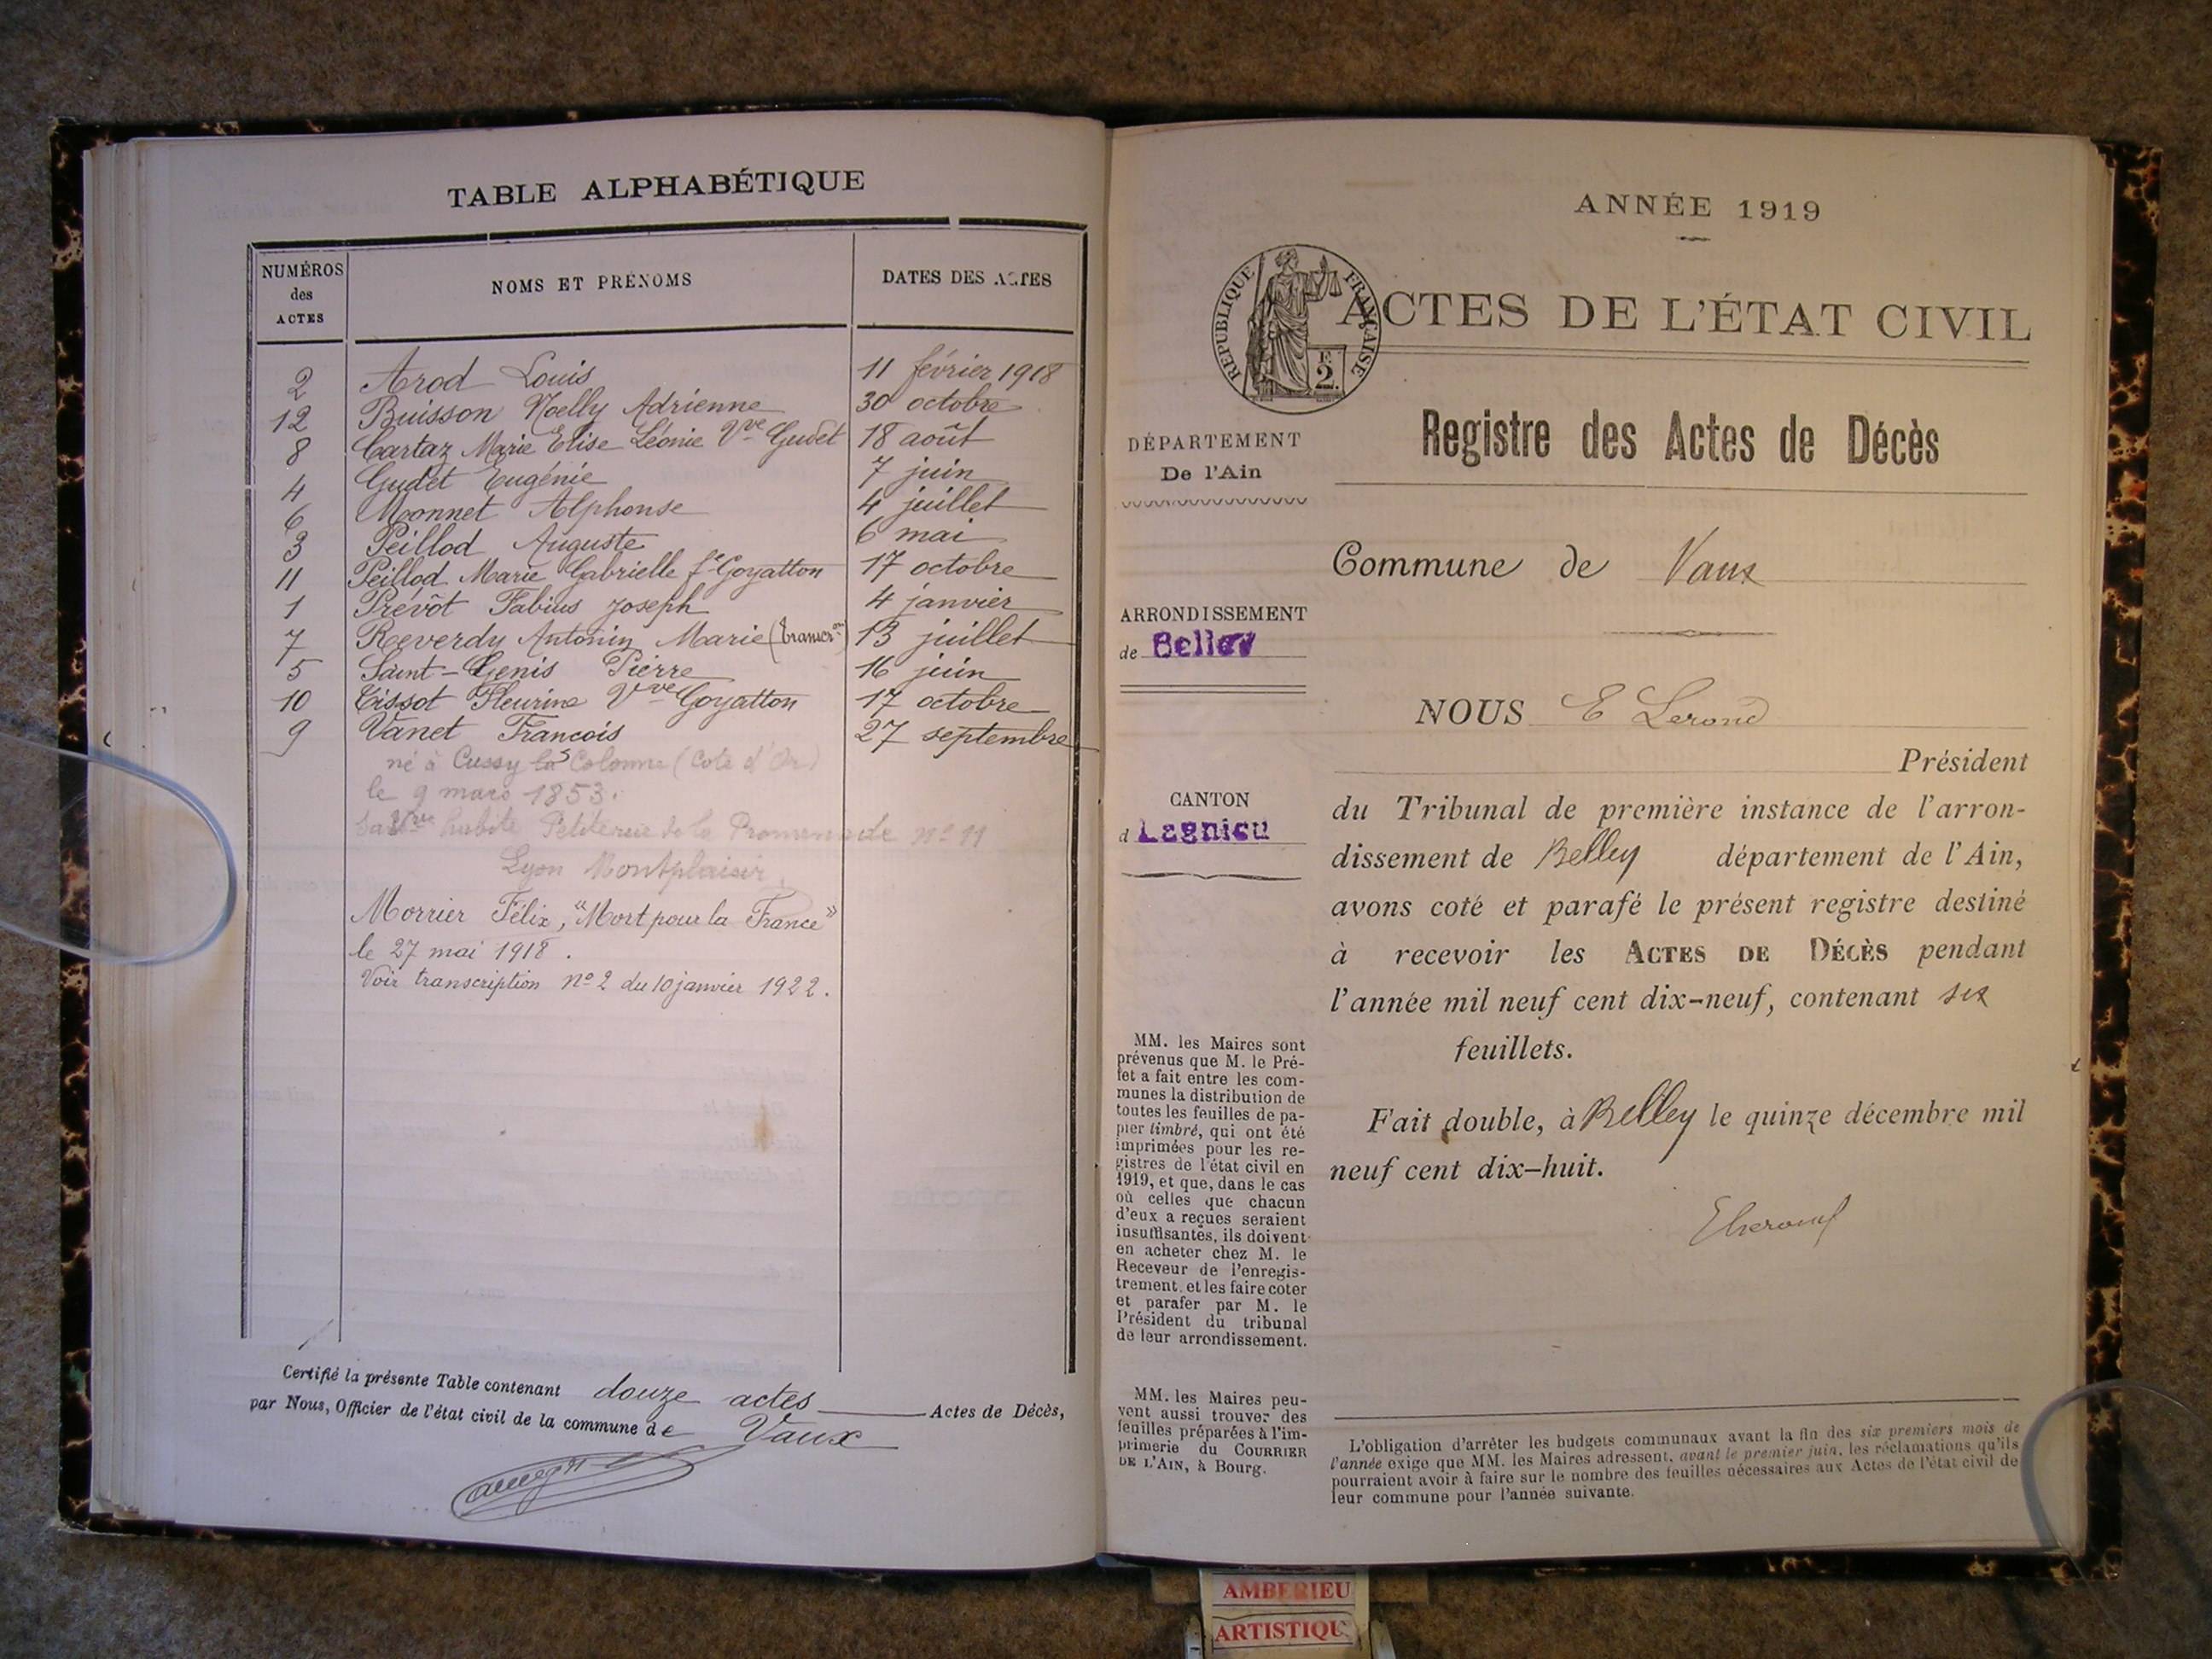 TABLE ALPHABÉTIQUE
NUMÉROS des ACTES
NOMS ET PRÉNOMS
DATES DES ACTES
2 Arod Louis 11 février 1918
12 Buisson Noelly Adrienne 30 octobre
8 Cartaz Marie Elise Léonie Vve Gudet 18 août
4 Gudet Eugénie 7 juin
6 Monnet Alphonse 4 juillet
3 Peillod Auguste 6 mai
11 Peillod Marie Gabrielle fe Goyatton 17 octobre
1 Prévôt Fabius Joseph 4 janvier
7 Reverdy Antonin Marie (transcron) 13 juillet
5 Saint-Genis Pierre 16 juin
10 Tissot Fleurine Vve Goyatton 17 octobre
9 Vanet Francois 27 septembre
né à Cussy la Colonne (Cote d'Or)
le 9 mars 1853.
Sa habite Petite rue de la Promenade no 11
Lyon Montplaisir
Morrier Félix, "Mort pour la France"
le 27 mai 1918.
Voir transcription no 2 du 10 janvier 1922.
Certifié la présente Table contenant douze actes Actes de Décès,
par Nous, Officier de l'état civil de la commune de Vaux
ANNÉE 1919
RÉPUBLIQUE FRANÇAISE
2
ACTES DE L'ÉTAT CIVIL
Registre des Actes de Décès
DÉPARTEMENT
De l'Ain
Commune de Vaux
ARRONDISSEMENT
de Belley
NOUS E Lerond
Président
CANTON
d Lagnieu
du Tribunal de première instance de l'arron-
dissement de Belley département de l'Ain,
avons coté et parafé le présent registre destiné
à recevoir les ACTES DE DÉCÈS pendant
l'année mil neuf cent dix-neuf, contenant six
feuillets.
Fait double, à Belley le quinze décembre mil
neuf cent dix-huit.
ELerond
MM. les Maires sont
prévenus que M. le Pré-
fet a fait entre les com-
munes la distribution de
toutes les feuilles de pa-
pier timbré, qui ont été
imprimées pour les re-
gistres de l'état civil en
1919, et que, dans le cas
où celles que chacun
d'eux a reçues seraient
insuffisantes, ils doivent
en acheter chez M. le
Receveur de l'enregis-
trement, et les faire coter
et parafer par M. le
Président du tribunal
de leur arrondissement.
MM. les Maires peu-
vent aussi trouver des
feuilles préparées à l'im-
primerie du COURRIER
DE L'AIN, à Bourg.
L'obligation d'arrêter les budgets communaux avant la fin des six premiers mois de
l'année exige que MM. les Maires adressent, avant le premier juin, les réclamations qu'ils
pourraient avoir à faire sur le nombre des feuilles nécessaires aux Actes de l'état civil de
leur commune pour l'année suivante.
AMBERIEU
ARTISTIQU